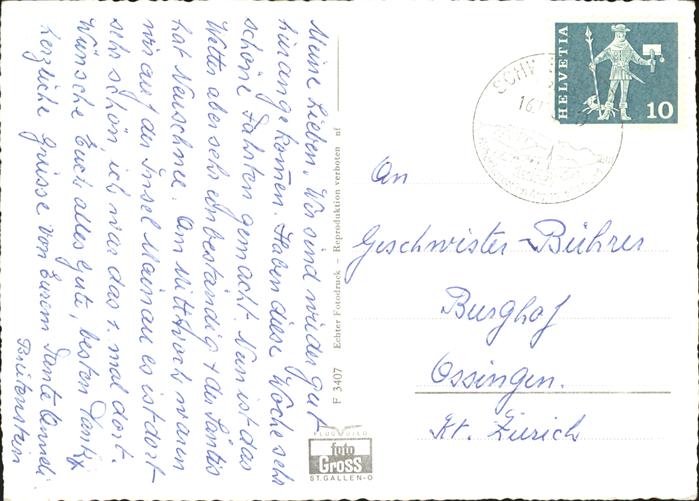 Meine Lieben. Wir sind wieder gut
hier angekommen. Haben diese Woche sehr
schöne Fahrten gemacht. Nun ist das
Wetter aber sehr unbeständig & der Säntis
hat Neuschnee. Am Mittwoch waren
wir auf der Insel Mainau es ist dort
sehr schön ich war das 1. mal dort.
Wünsche Euch alles Gute, besten Dank &
herzliche Grüsse von Eurem Tante Anneli
Breitenstein
F 3407 Echter Fotodruck – Reproduktion verboten af
HELVETIA
10
SCHW
16.
An
Geschwister Bührer
Burghof
Ossingen.
Kt. Zürich
FLUGBILD
foto
Gross
ST. GALLEN-O